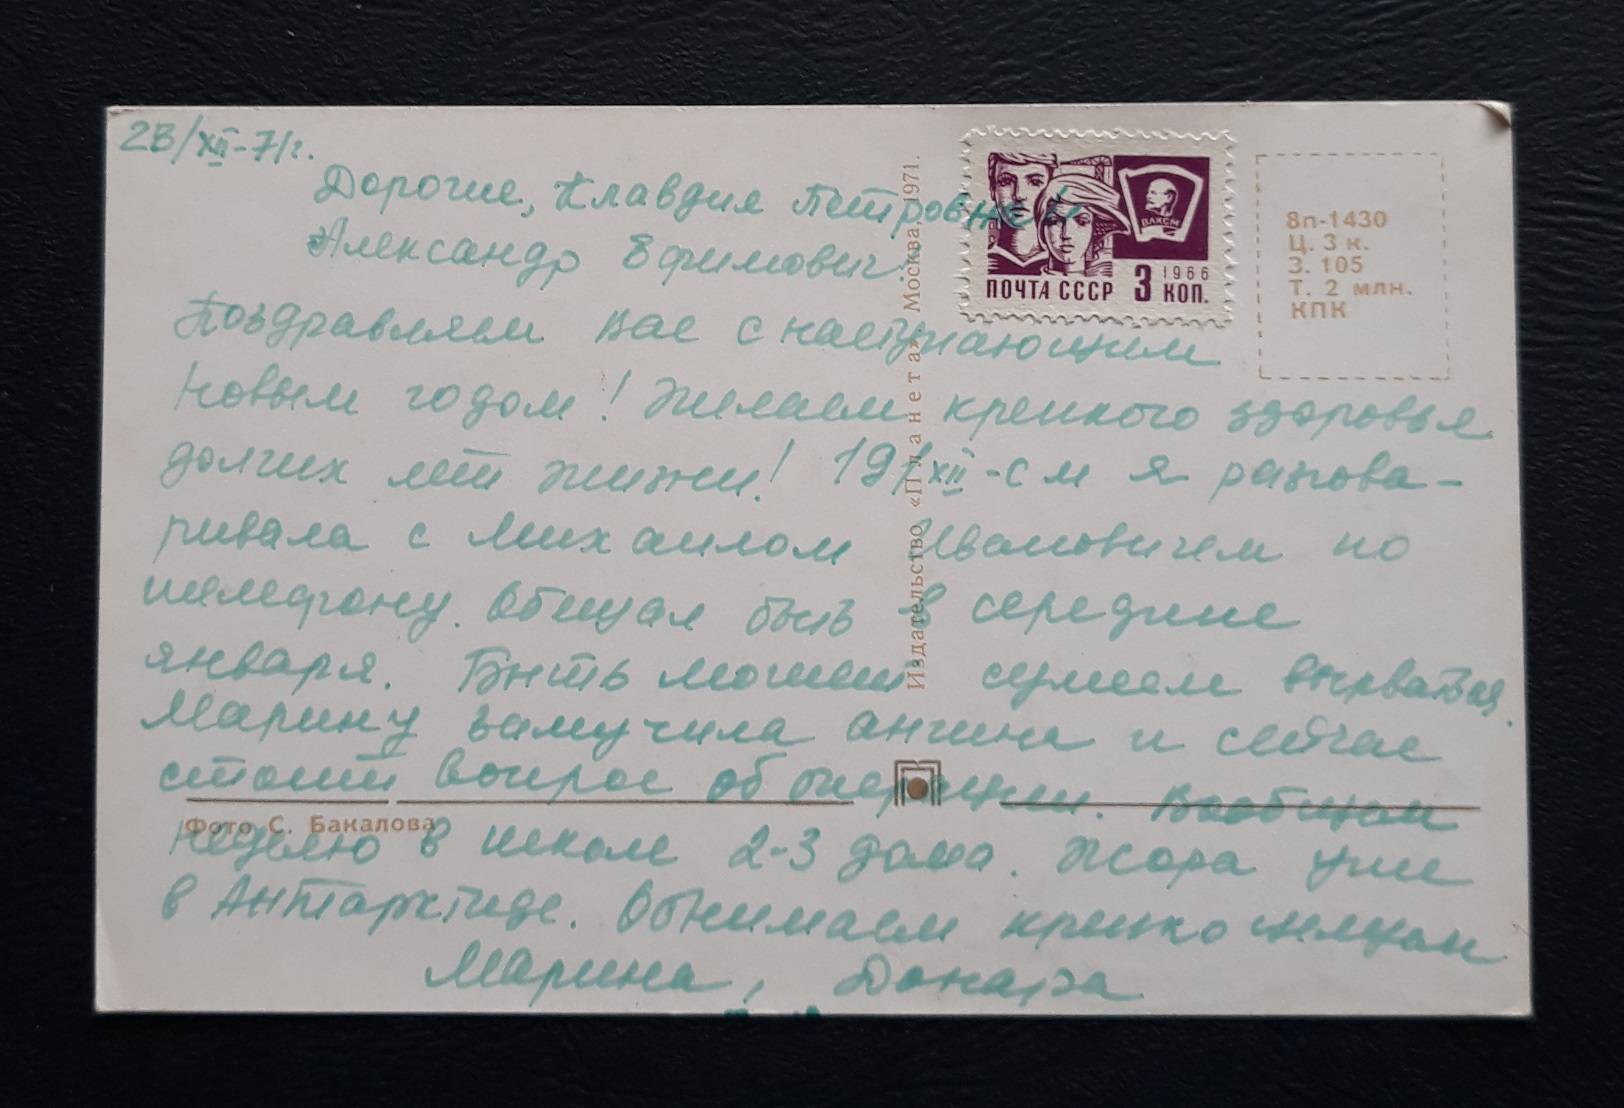 23/XII-71г.
Дорогие, Клавдия Петровна и
Александр Ефимович!
Поздравляем вас с наступающим
Новым годом! Желаем крепкого здоровья
долгих лет жизни! 19/XII-с м я разгова-
ривала с Михаилом Ивановичем по
телефону. Обещал быть в середине
января. Быть может сумеем вырваться.
Марину замучила ангина и сейчас
стоит вопрос об операции. Вообщем
неделю в школе 2-3 дома. Жора уже
в Антарктиде. Обнимаем крепко целуем
Марина, Донара
Издательство «Планета» Москва, 1971.
ВЛКСМ
1966
ПОЧТА СССР 3 КОП.
8п-1430
Ц. 3 к.
З. 105
Т. 2 млн.
КПК
Фото С. Бакалова